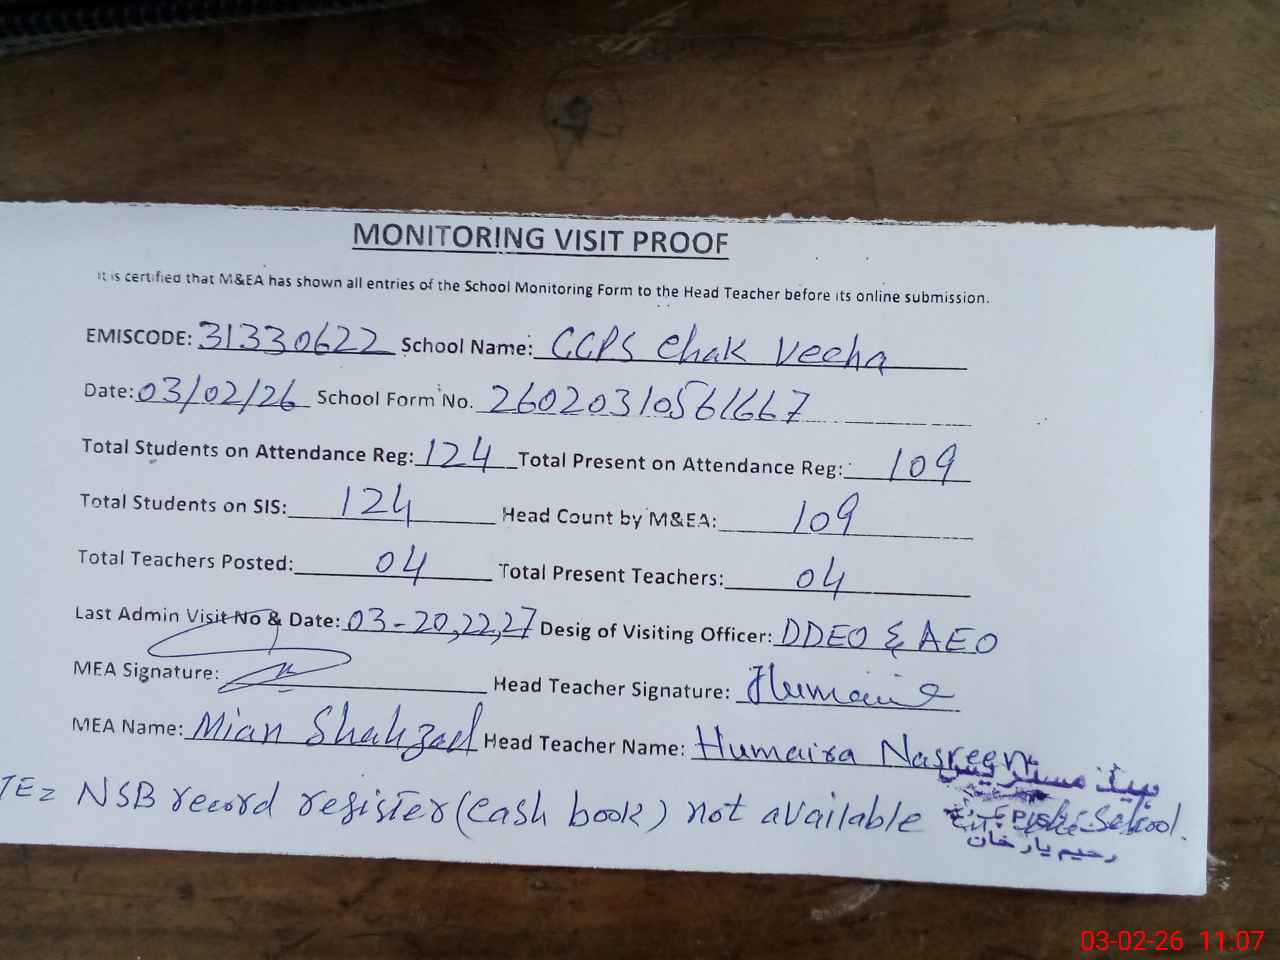 MONITORING VISIT PROOF
It is certified that M&EA has shown all entries of the School Monitoring Form to the Head Teacher before its online submission.
EMISCODE: 31330622 School Name: CCPS Chak Veeha
Date: 03/02/26 School Form No. 26020310561667
Total Students on Attendance Reg: 124 Total Present on Attendance Reg: 109
Total Students on SIS: 124 Head Count by M&EA: 109
Total Teachers Posted: 04 Total Present Teachers: 04
Last Admin Visit No & Date: 03-20,22,27 Desig of Visiting Officer: DDEO & AEO
MEA Signature: Head Teacher Signature: Humaira
MEA Name: Mian Shahzad Head Teacher Name: Humaira Nasreen
TE= NSB record register (cash book) not available School.
ہیڈ مسٹریس
رحیم یار خان
03-02-26 11:07